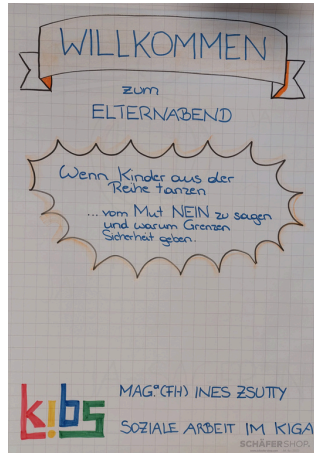 WILLKOMMEN
zum
ELTERNABEND
Wenn Kinder aus der
Reihe tanzen
... vom Mut NEIN zu sagen
und warum Grenzen
Sicherheit geben.
kibs
MAG.ª (FH) INES ZSUTTY
SOZIALE ARBEIT IM KIGA
SCHÄFERSHOP